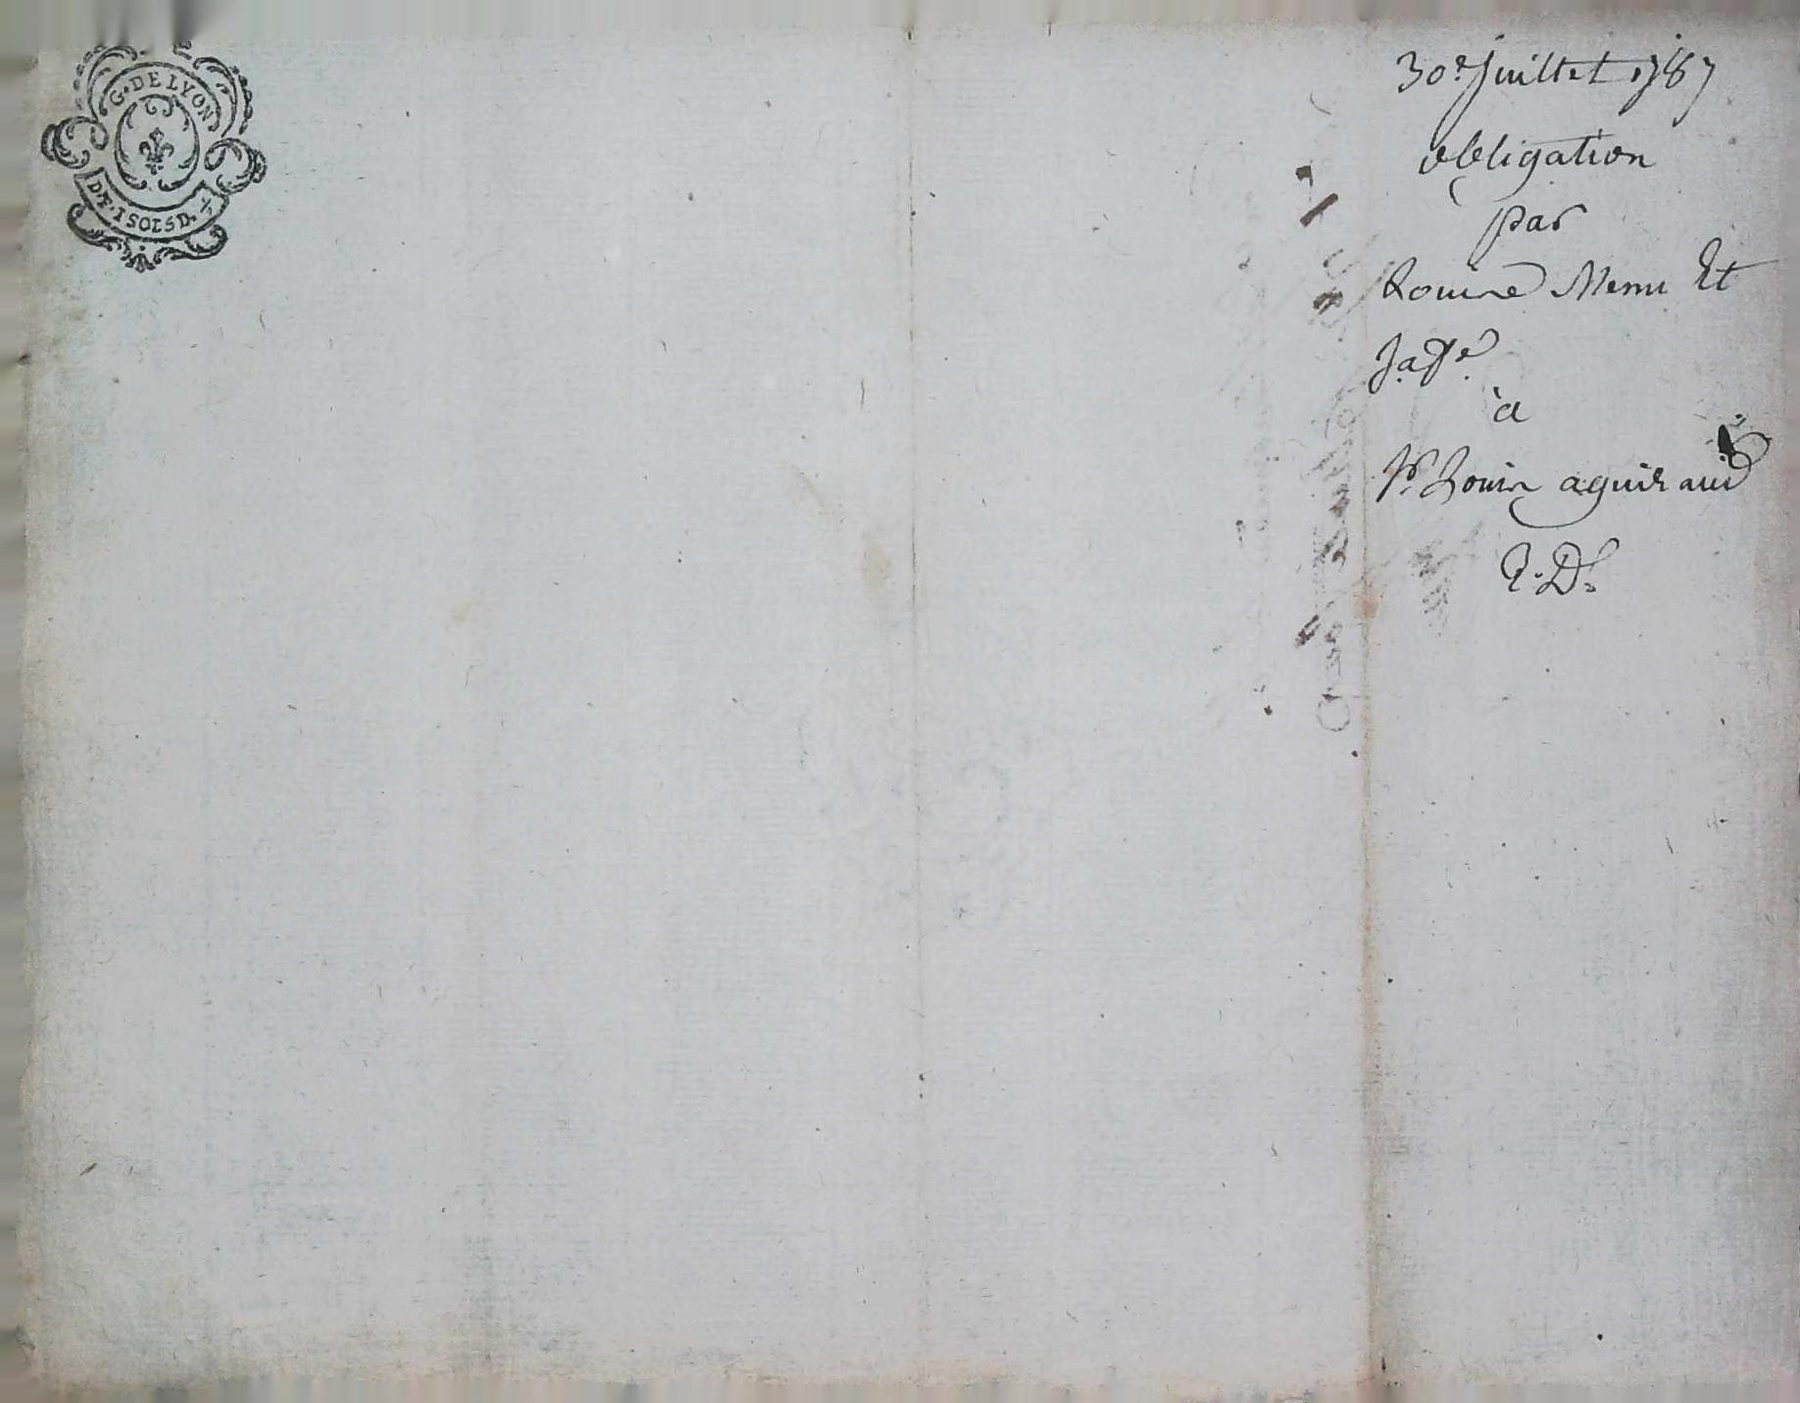 G. DE LYON
DE. 1 SOLS D.
30e Juillet 1787
obligation
par
Louise Menu Et
à
Sr. Louis aguiraud
E. D.